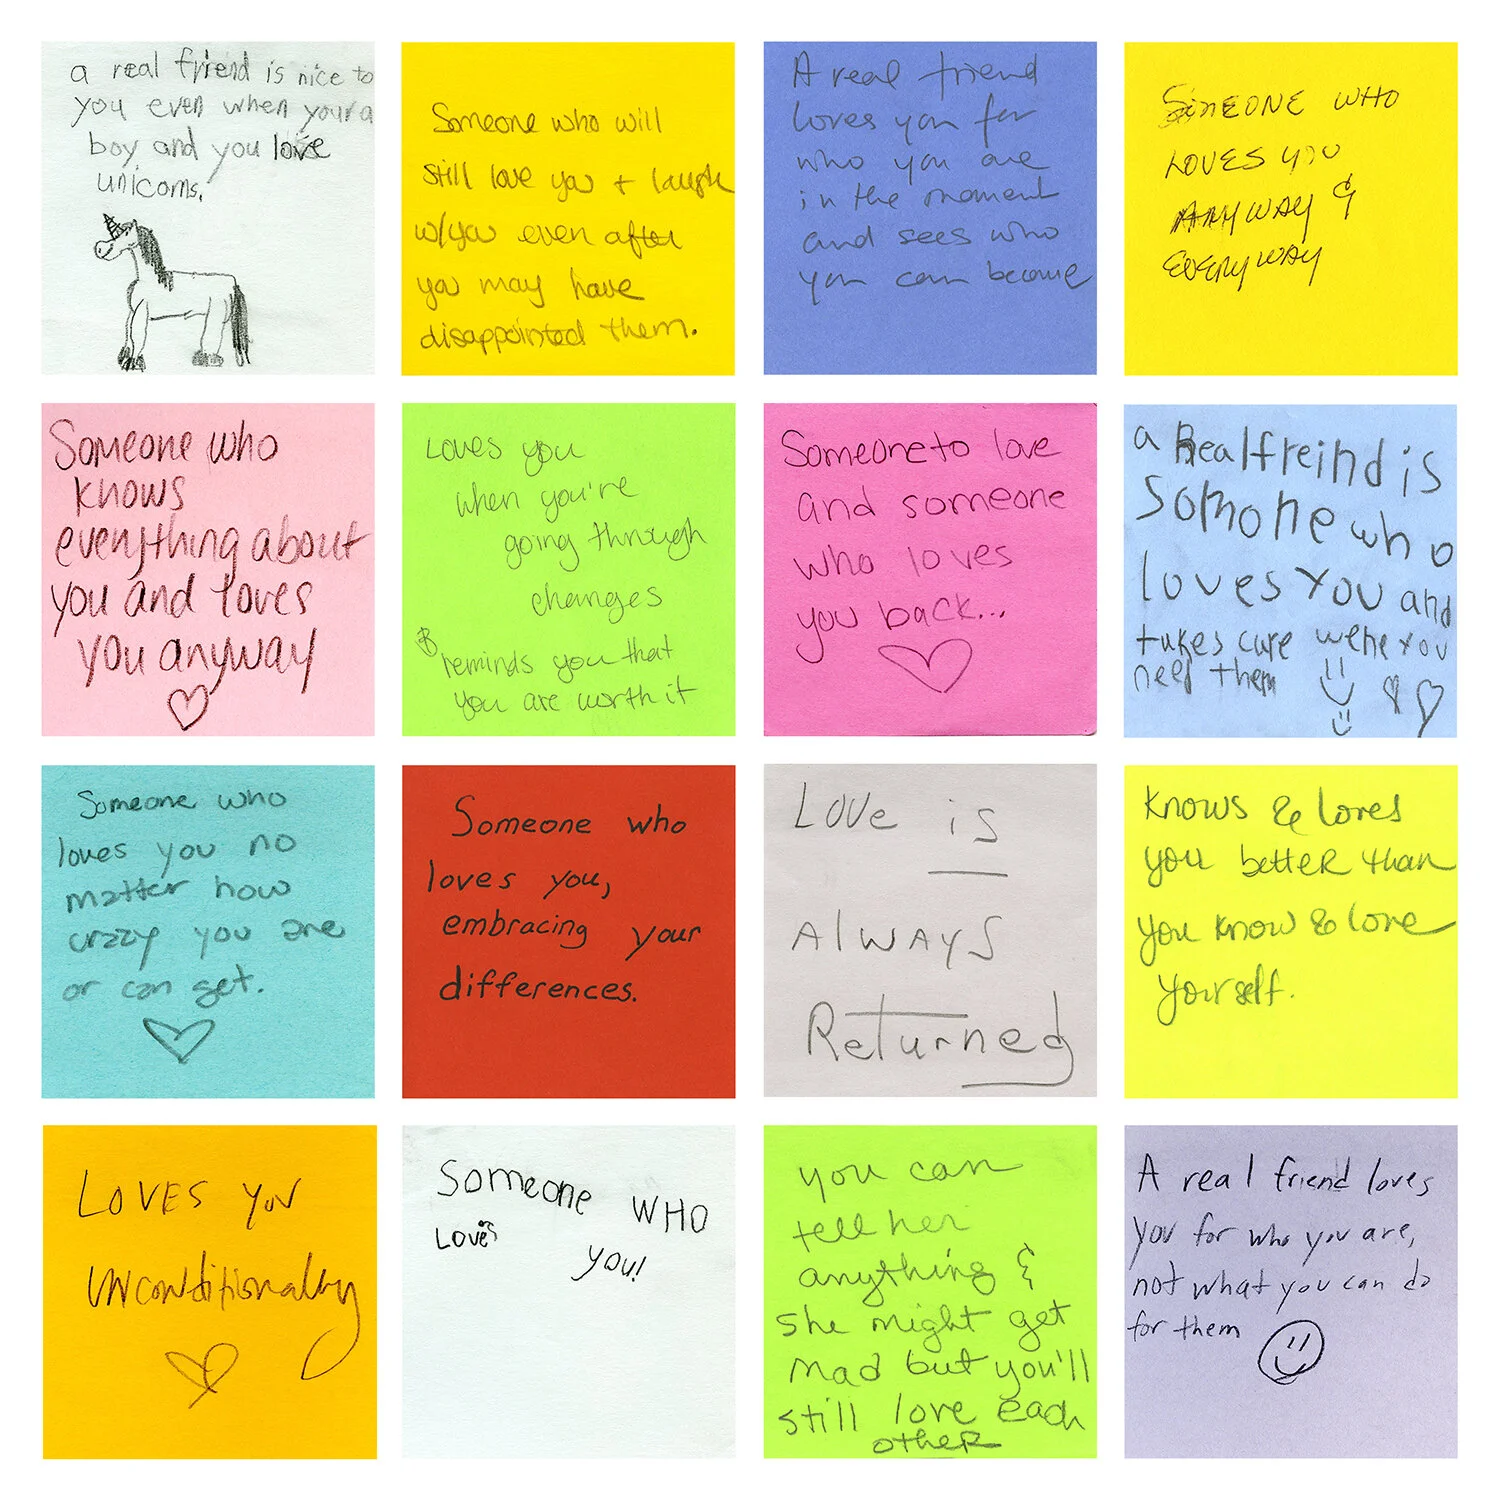 a real friend is nice to
you even when your a
boy and you love
unicorns.
Someone who will
still love you + laugh
w/you even after
you may have
disappointed them.
A real friend
loves you for
who you are
in the moment
and sees who
you can become
SOMEONE WHO
LOVES YOU
ANYWAY &
EVERYWAY
Someone who
knows
everything about
you and loves
you anyway
Loves you
when you're
going through
changes
&
reminds you that
you are worth it
Someone to love
and someone
who loves
you back...
a Real freind is
somone who
loves you and
takes care wehe you
need them
Someone who
loves you no
matter how
crazy you are
or can get.
Someone who
loves you,
embracing your
differences.
LOVe is
Always
Returned
Knows & loves
you better than
you know & love
yourself.
LOVES YOU
UNCONDITIONALLY
Someone WHO
Loves
you!
you can
tell her
anything &
she might get
mad but you'll
still love each
other
A real friend loves
you for who you are,
not what you can do
for them